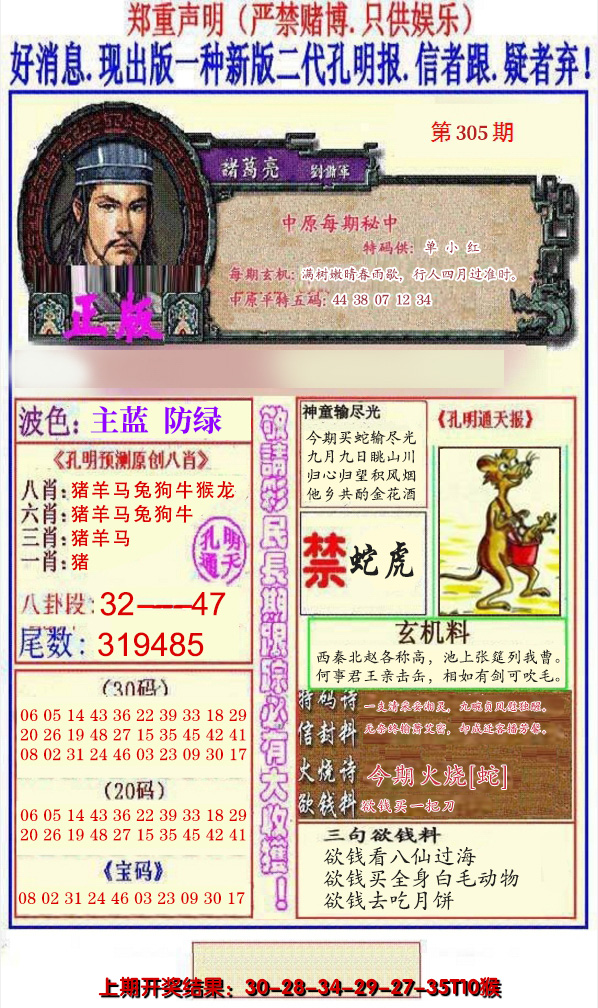 郑重声明（严禁赌博.只供娱乐）
好消息.现出版一种新版二代孔明报.信者跟.疑者弃!
第305期
諸葛亮 劉備軍
中原每期秘中
特码供：单小红
每期玄机：满树嫩晴春雨歇，行人四月过淮时。
中原平特五码：44 38 07 12 34
正版
波色：主蓝 防绿
《孔明预测原创八肖》
八肖:猪羊马兔狗牛猴龙
六肖:猪羊马兔狗牛
三肖:猪羊马
一肖:猪
孔明
通天
八卦段:32----47
尾数:319485
（30码）
06 05 14 43 36 22 39 33 18 29
20 26 19 48 27 15 35 45 42 41
08 02 31 24 46 03 23 09 30 17
（20码）
06 05 14 43 36 22 39 33 18 29
20 26 19 48 27 15 35 45 42 41
《宝码》
08 02 31 24 46 03 23 09 30 17
敬請彩民長期跟踪必有大收獲！
神童输尽光
今期买蛇输尽光
九月九日眺山川
归心归望积风烟
他乡共酌金花酒
《孔明通天报》
禁蛇虎
玄机料
西秦北赵各称高，池上张筵列我曹。
何事君王亲击缶，相如有剑可吹毛。
特码诗
信封料
火烧诗 今期火烧[蛇]
欲钱料 欲钱买一把刀
三句欲钱料
欲钱看八仙过海
欲钱买全身白毛动物
欲钱去吃月饼
上期开奖结果：30-28-34-29-27-35T10猴